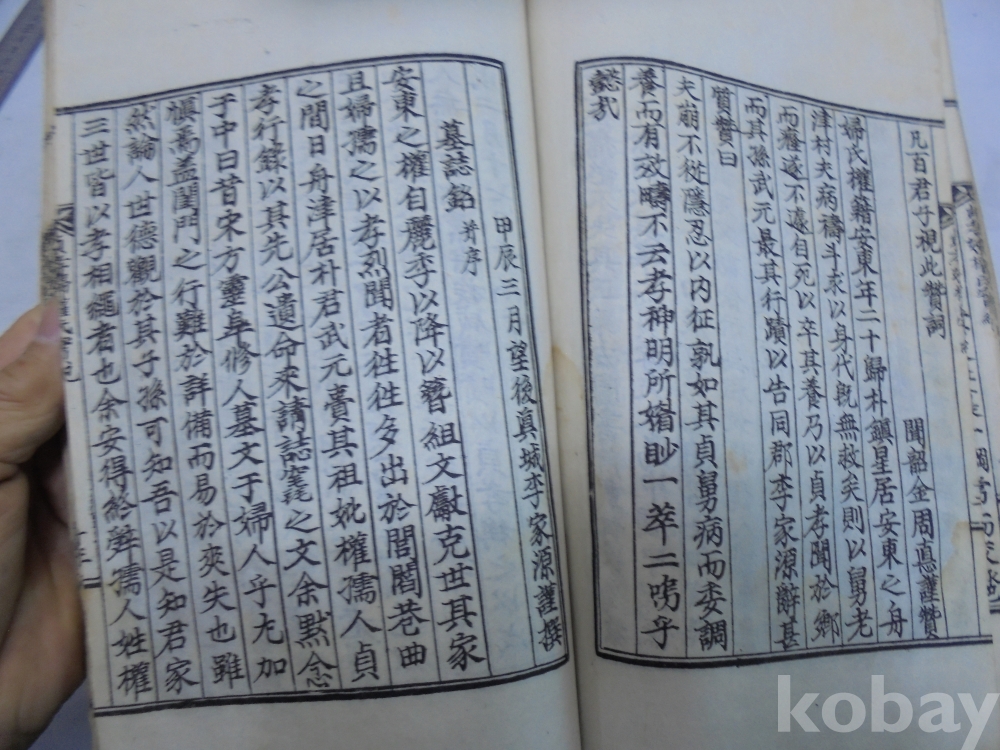 凡百君子視此贊詞
聞韶金周悳謹贊
婦氏權籍安東年二十歸朴鎭星居安東之舟
津村夫病禱斗求以身代旣無救矣則以舅老
而癃遂不遽自死以卒其養乃以貞孝聞於鄉
而其孫武元最其行蹟以告同郡李家源辭甚
質贊曰
夫崩不從隱忍以內征孰如其貞舅病而委調
養而有效疇不云孝神明所 一萃二 乎
懿哉
甲辰三月望後眞城李家源謹撰
墓誌銘 并序
安東之權自麗季以降以簪組文獻克世其家
且婦孺之以孝烈聞者徃徃多出於閭閻巷曲
之間日舟津居朴君武元賷其祖妣權孺人貞
孝行錄以其先公遺命來請誌 之文余默念
于中曰昔宋方靈皐修人墓文于婦人乎尢加
愼焉盖閨門之行難於詳備而易於爽失也雖
然論人世德觀於其子孫可知吾以是知君家
三世皆以孝相繩者也余安得終辭孺人姓權
kobay